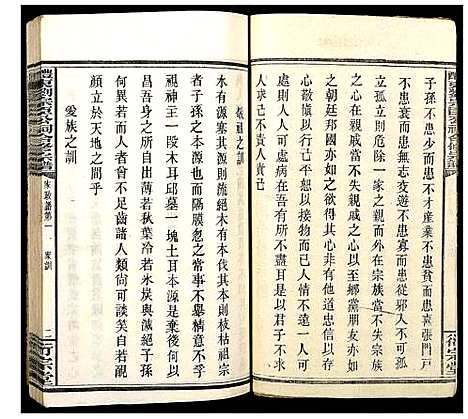 不患人不忠患子不才產業不患貧患喜張門戶
不患衰患無志交遊不患寡患從邪人不可
孤立孤立則危鄉黨之外在宗族當不失宗族
之心在親戚當不失親戚之心以至鄉黨朋友亦
如之以至朝廷國亦如之求其心非有他道忠信
心敬慎以行己平恕以接物而已人情不遠一人可
處則人人可處人之病在吾所不盡耳是以君子不
求人求己不責人責己
敬祖之訓
水有源寒其源則流絕木有本伐其本則枝枯祖宗
者子孫之本源也而隔膜忽之是謂不孝
視神主一塊木耳邱墓一塊土耳本源是棄後何由
昌吾身之所自出薄若秋葉冷若氷炭與滅絕子孫
何異若而人者會不足齒諸人類尚可談笑自若
顏立於天地之間乎
愛族之訓
家政譜第一
家訓